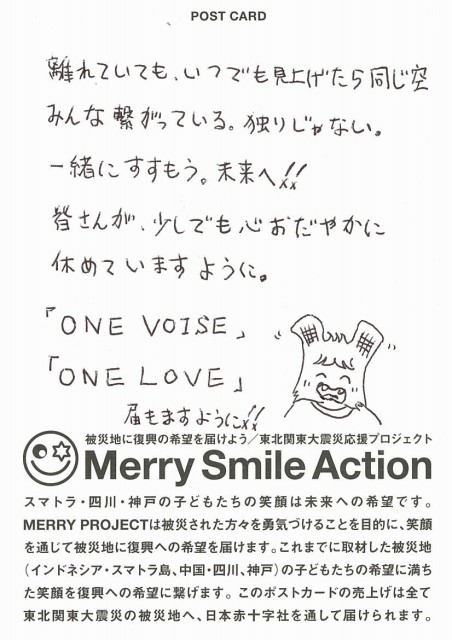 POST CARD
離れていても、いつでも見上げたら同じ空
みんな繋がっている。独りじゃない。
一緒にすすもう。未来へ!!
皆さんが、少しでも心おだやかに
休めていますように。
「ONE VOISE」
「ONE LOVE」
届きますように!!
被災地に復興の希望を届けよう／東北関東大震災応援プロジェクト
Merry Smile Action
スマトラ・四川・神戸の子どもたちの笑顔は未来への希望です。
MERRY PROJECTは被災された方々を勇気づけることを目的に、笑顔
を通じて被災地に復興への希望を届けます。これまでに取材した被災地
（インドネシア・スマトラ島、中国・四川、神戸）の子どもたちの希望に満ち
た笑顔を復興への希望に繋げます。このポストカードの売上げは全て
東北関東大震災の被災地へ、日本赤十字社を通して届けられます。